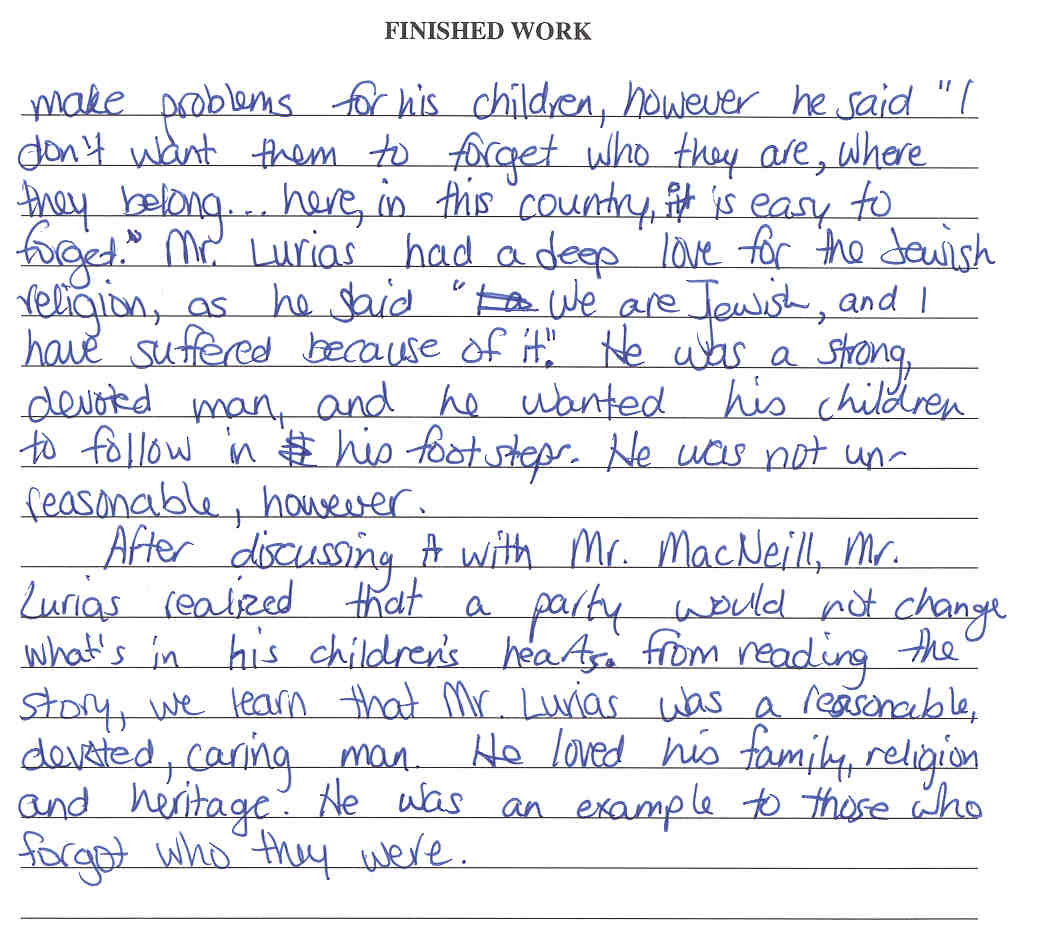 FINISHED WORK
make problems for his children, however he said "I
don't want them to forget who they are, where
they belong... here, in this country, it is easy to
forget." Mr. Lurias had a deep love for the Jewish
religion, as he said " We are Jewish, and I
have suffered because of it". He was a strong,
devoted man, and he wanted his children
to follow in his footsteps. He was not un-
reasonable, however.
After discussing it with Mr. MacNeill, Mr.
Lurias realized that a party would not change
what's in his children's hearts. From reading the
story, we learn that Mr. Lurias was a reasonable,
devoted, caring man. He loved his family, religion
and heritage. He was an example to those who
forgot who they were.